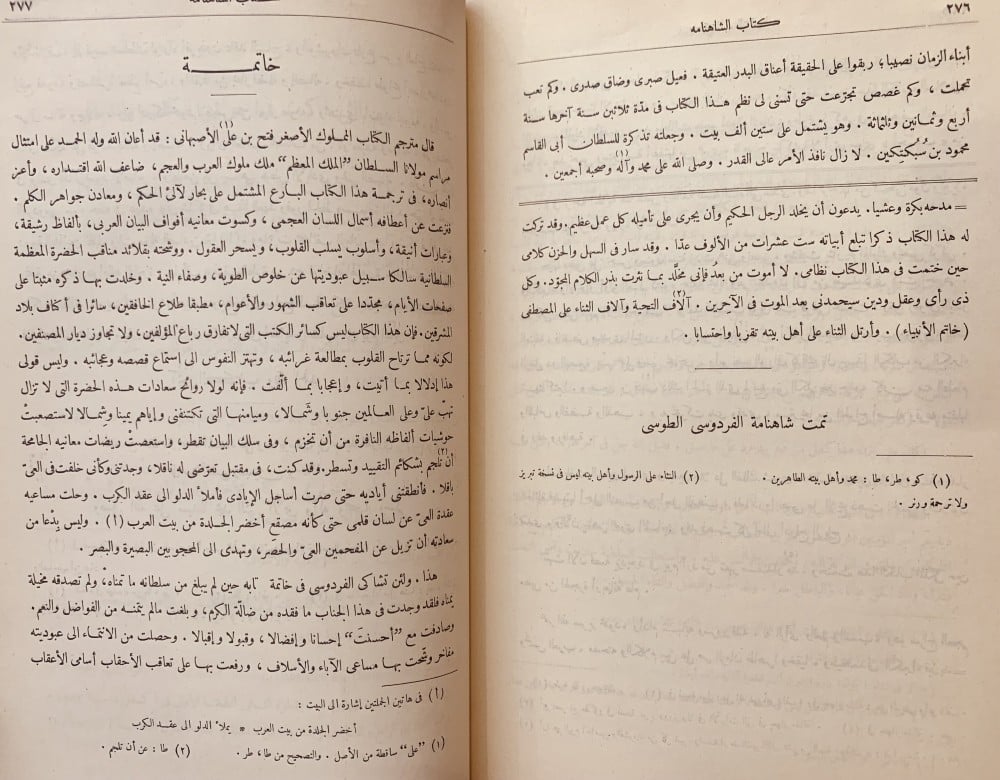 ٢٧٦
كتاب الشاهنامه
أبناء الزمان نصيبا؛ ربقوا على الحقيقة أعناق البدر العتيقة . فعيل صبرى وضاق صدرى . وكم تعب
تحملت ، وكم غصص تجرّعت حتى تسنى لى نظم هذا الكتاب فى مدة ثلاثين سنة آخرها سنة
أربع وثمانين وثلثائة . وهو يشتمل على ستين ألف بيت . وجعلته تذكرة للسلطان أبى القاسم
محمود بن سُبُكتِكين . لا زال نافذ الأمر عالى القدر . وصلى الله على محمد وآله(١) وصحبه أجمعين .
= مدحه بكرة وعشيا . يدعون أن يخلد الرجل الحكيم وأن يجرى على تأميله كل عمل عظيم . وقد تركت
له هذا الكتاب ذكرا تبلغ أبياته ست عشرات من الألوف عدّا . وقد سار فى السهل والحزن كلامى
حين ختمت فى هذا الكتاب نظامى . لا أموت من بعدُ فإنى مخلَّد بما نثرت بذر الكلام المجوّد . وكل
ذى رأى وعقل ودين سيحمدنى بعد الموت فى الآخرين . آلاف(٢) التحية وآلاف الثناء على المصطفى
(خاتم الأنبياء) . وأرتل الثناء على أهل بيته تقربا واحتسابا .
تمت شاهنامة الفردوسى الطوسى
(١) كو، طر، طا : محمد وأهل بيته الطاهرين . (٢) الثناء على الرسول وأهل بيته ليس فى نسخة تبريز
ولا ترجمة ورنر .
٢٧٧
كتاب الشاهنامه
خاتمـــة
قال مترجم الكتاب المملوك الأصغر فتح بن علىّ(١) الأصبهانى : قد أعان الله وله الحمد على امتثال
مراسم مولانا السلطان "الملك المعظم" ملك ملوك العرب والعجم، ضاعف الله اقتداره ، وأعز
أنصاره، فى ترجمة هذا الكتاب البارع المشتمل على بحار لآلئ الحكم ، ومعادن جواهر الكلم .
فنزعت عن أعطافه أسمال اللسان العجمى ، وكسوت معانيه أفواف البيان العربى ، بألفاظ رشيقة،
وعبارات أنيقة، وأسلوب يسلب القلوب، ويسحر العقول . ووشحته بقلائد مناقب الحضرة المعظمة
السلطانية سالكا سبيل عبوديتها عن خلوص الطوية، وصفاء النية . وخلدت بها ذكره مثبتا على
صفحات الأيام، مجدّدا على تعاقب الشهور والأعوام، مطبقا طلاع الخافقين، سائرا فى أكناف بلاد
المشرقين. فإن هذا الكتاب ليس كسائر الكتب التى لا تفارق رباع المؤلفين، ولا تجاوز ديار المصنفين.
لكونه مما ترتاح القلوب بمطالعة غرائبه ، وتهتز النفوس الى استماع قصصه وعجائبه . وليس قولى
هذا إدلالا بما أتيت، وإعجابا بما ألّفت . فإنه لولا روائح سعادات هذه الحضرة التى لا تزال
تهبّ علىّ وعلى العالمين جنوبا وشَمالا، وميامنها التى تكتنفنى وإياهم يمينا وشِمالا لاستصعبتْ
حوشيات ألفاظه النافرة من أن تخزم ، وفى سلك البيان تقطر، واستعصت ريضات معانيه الجامحة
أن تلجم(٢) بشكائم التقييد وتسطر. وقد كنت، فى مقتبل تعرّضى له ناقلا، وجدتنى وكأنى خلفت فى العىّ
باقلا . فأنطقتنى أياديه حتى صرت أساجل الإيادى فأملأ الدلو الى عقد الكرب . وحلت مساعيه
عقدة العىّ عن لسان قلمى حتى كأنه مصقع أخضر الجلدة من بيت العرب (أ) . وليس بِدْعا من
سعادته أن تزيل عن المفحمين العىّ والحصَر، وتهدى الى المحجوبين البصيرة والبصر .
هذا . ولئن تشاكى الفردوسى فى خاتمة تابه حين لم يبلغ من سلطانه ما تمناه، ولم تصدقه مخيلة
يمناه فلقد وجدت فى هذا الجناب ما فقده من ضالّة الكرم، وبلغت مالم يتمنه من الفواضل والنعم.
وصادفت مع "أحسنتَ" إحسانا وإفضالا ، وقبولا وإقبالا . وحصلت من الانتماء الى عبوديته
مفاخر وشّحت بها مساعى الآباء والأسلاف ، ورفعت بها على تعاقب الأحقاب أسامى الأعقاب
(أ) فى هاتين الجملتين إشارة الى البيت :
أخضر الجلدة من بيت العرب * يملأ الدلو الى عقد الكرب
(١) "على" ساقطة من الأصل . والتصحيح من طا، طر . (٢) طا : عن أن تلجم .